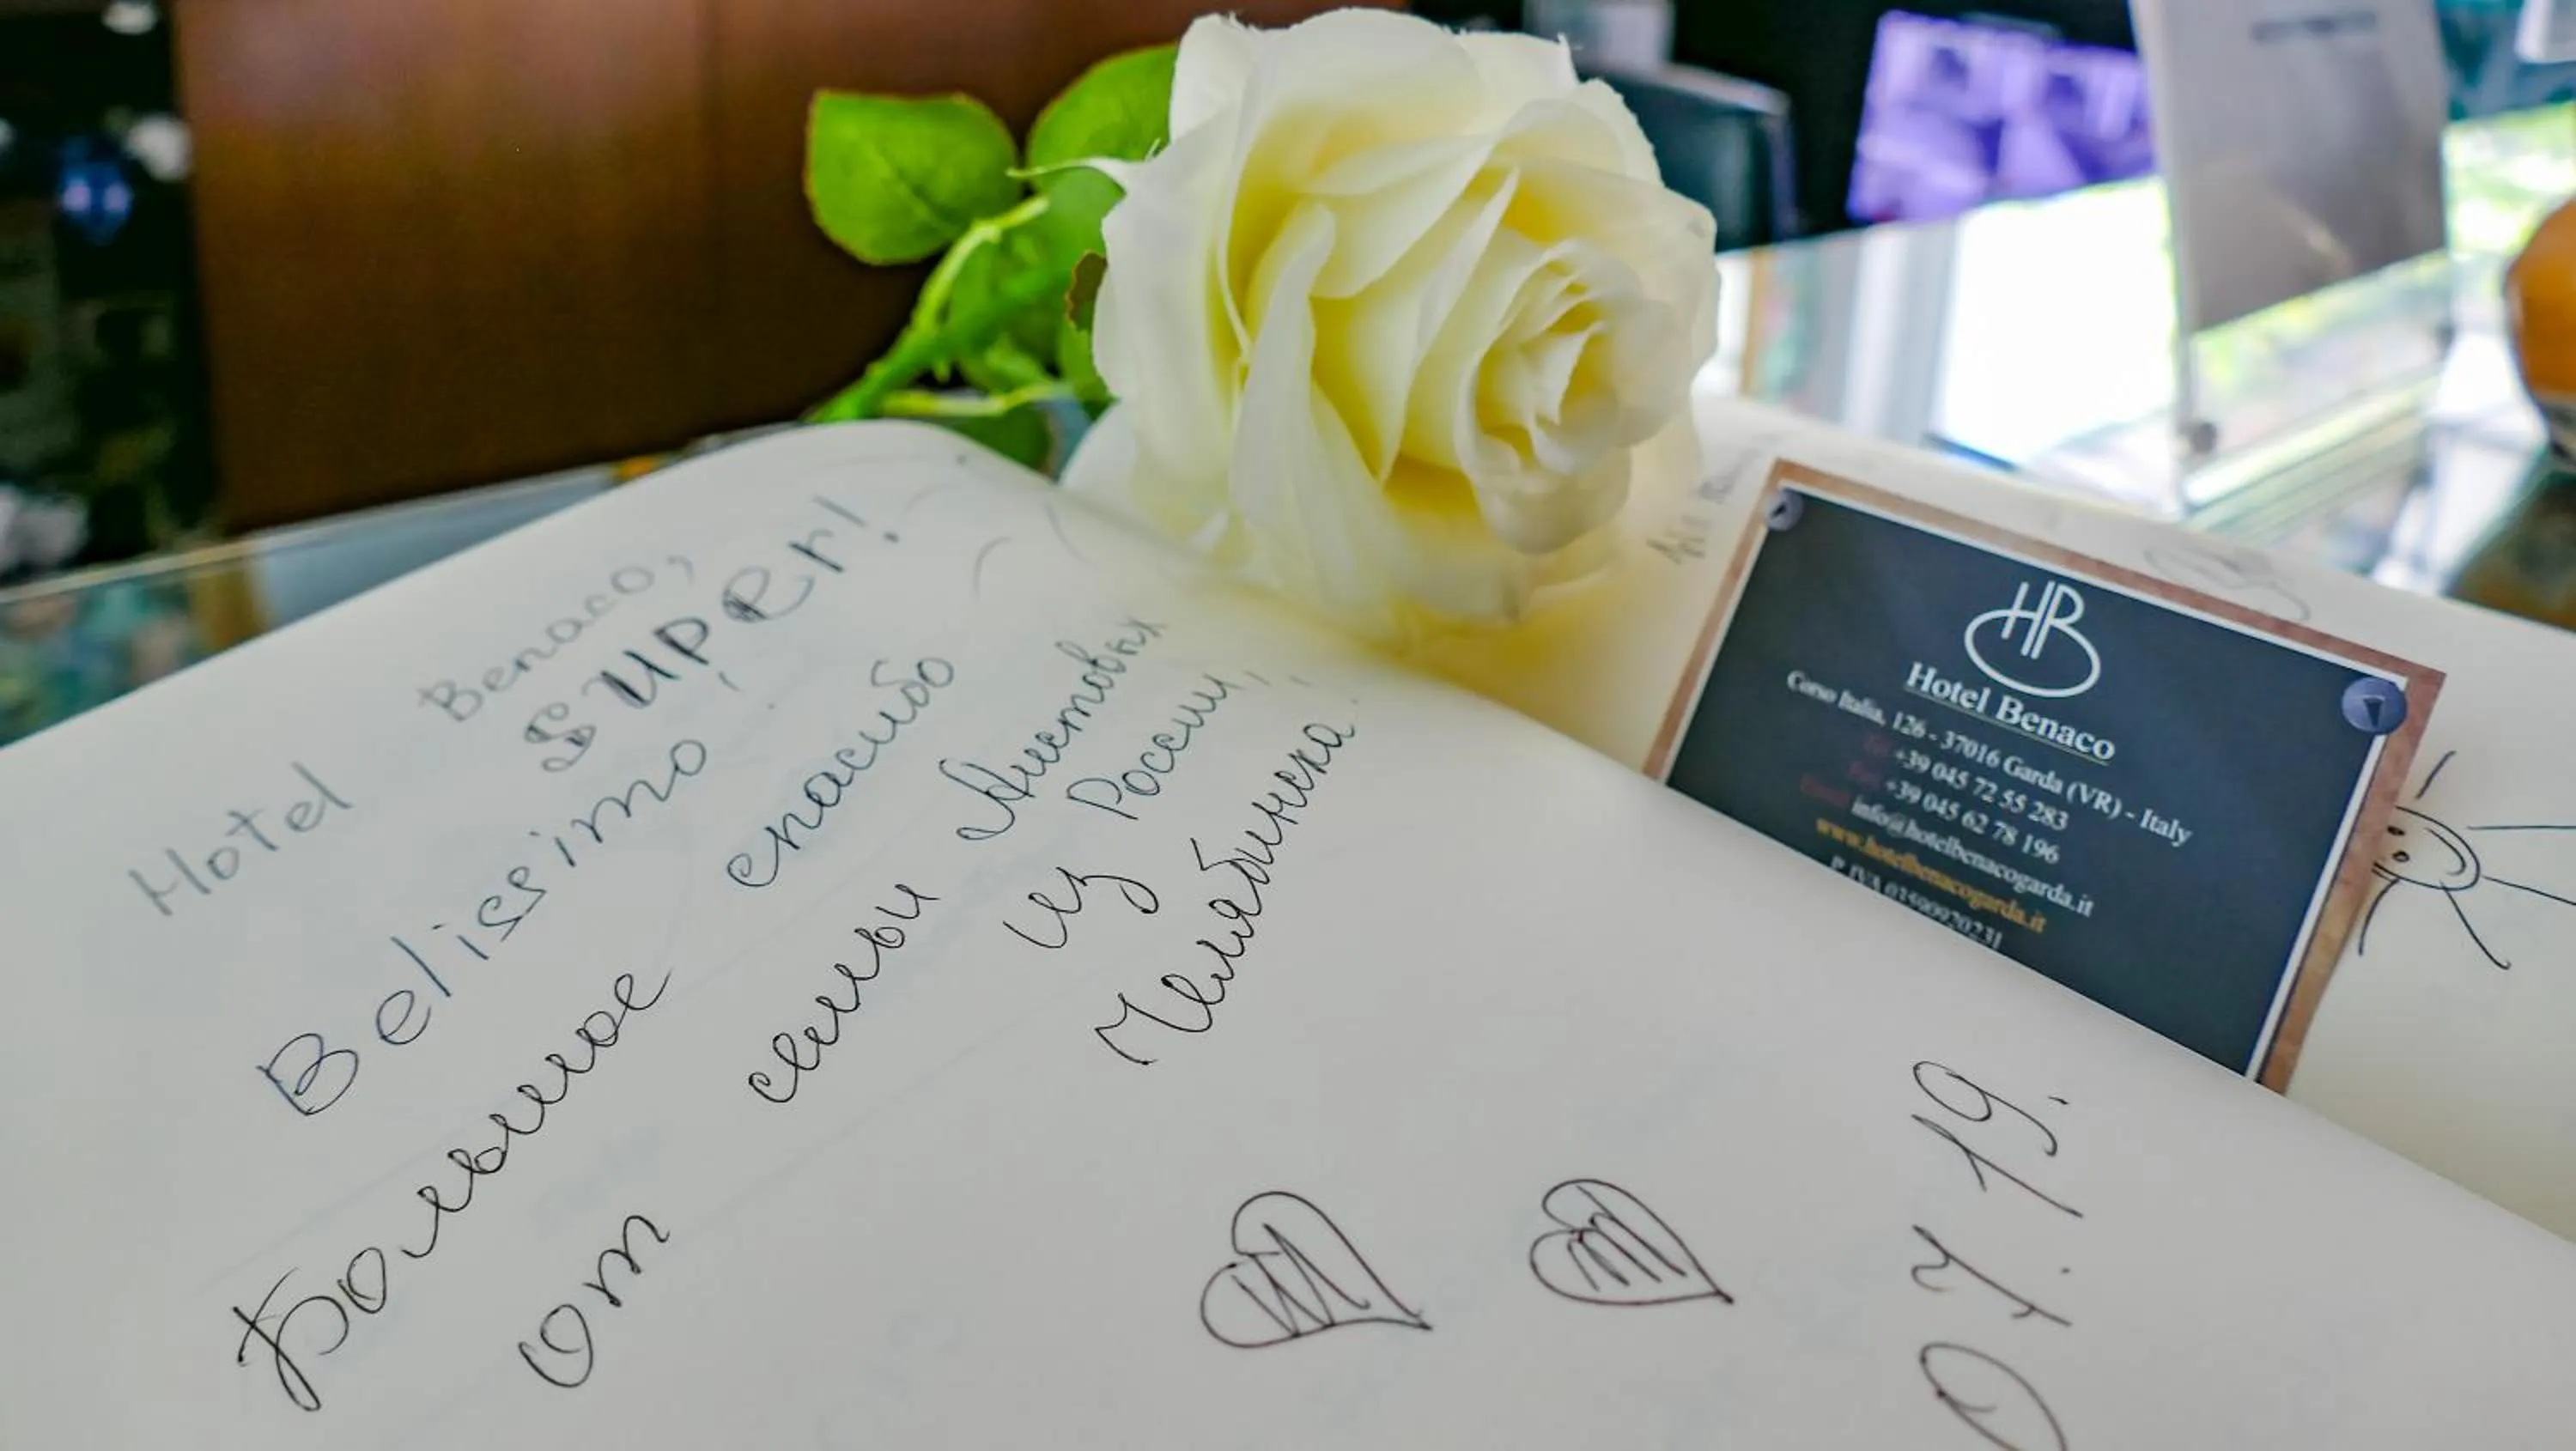 Hotel Benaco,
super!
Belissimo!
Большое спасибо
от семьи Аистовых
из России,
Челябинска!
07.19.
HB
Hotel Benaco
Corso Italia, 126 - 37016 Garda (VR) - Italy
+39 045 72 55 283
+39 045 62 78 196
info@hotelbenacogarda.it
www.hotelbenacogarda.it
P. IVA